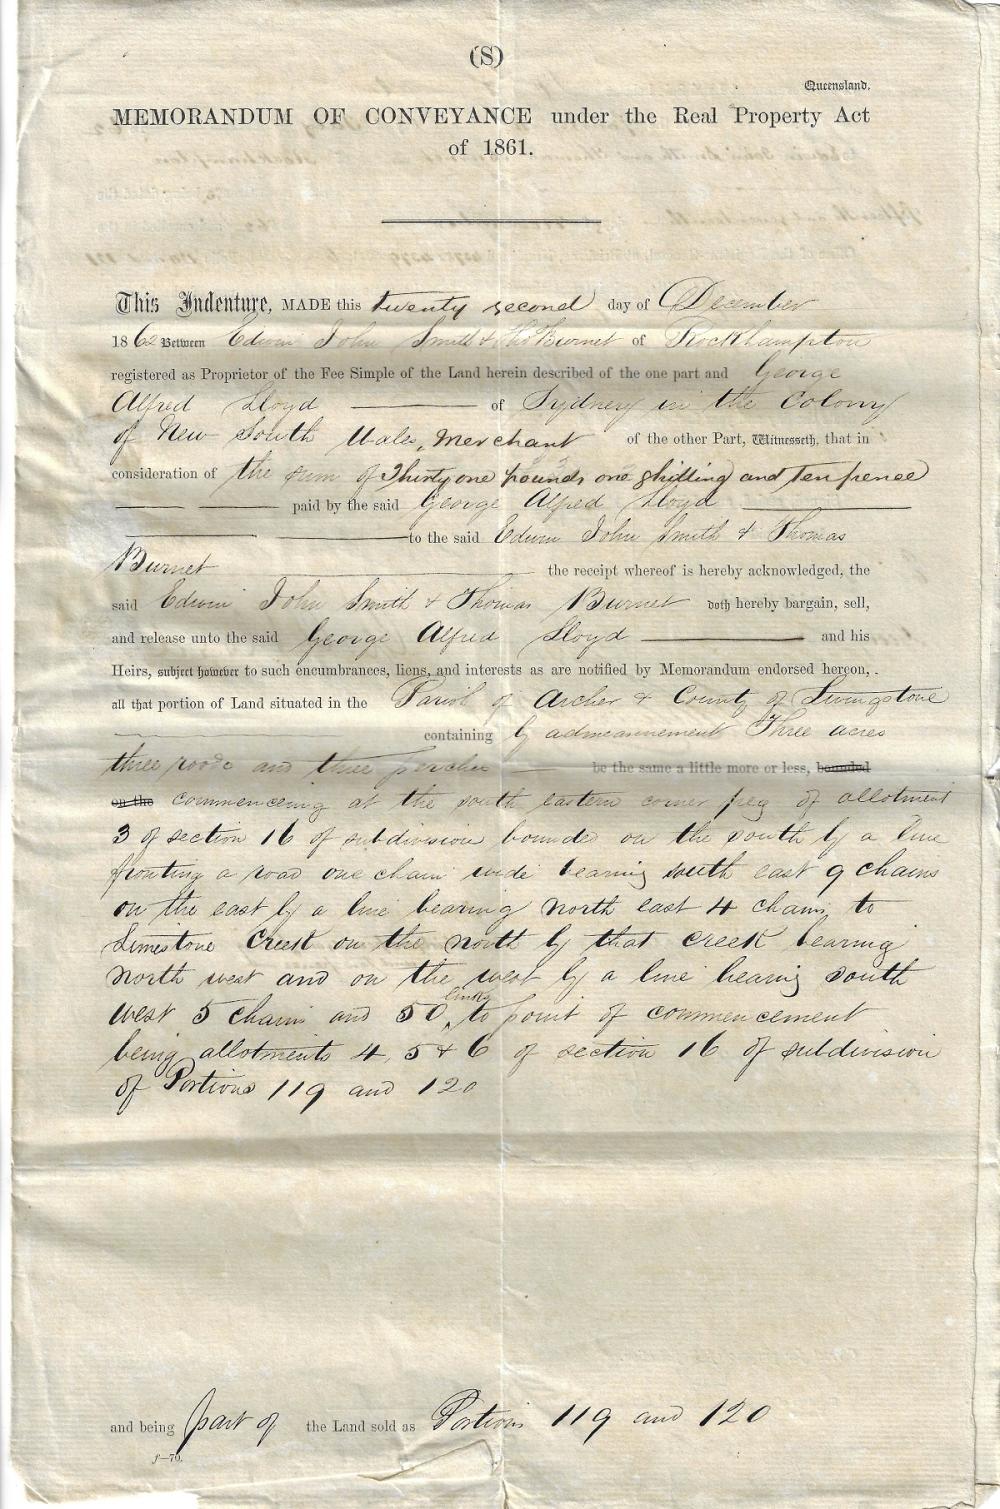 (S)
Queensland.
MEMORANDUM OF CONVEYANCE under the Real Property Act
of 1861.
This Indenture, MADE this twenty second day of December
1862 Between Edwin John Smith & Tho Burnet of Rockhampton
registered as Proprietor of the Fee Simple of the Land herein described of the one part and George
Alfred Lloyd of Sydney in the Colony
of New South Wales, Merchant of the other Part, Witnesseth, that in
consideration of the sum of Thirty one pounds one shilling and ten pence
paid by the said George Alfred Lloyd
to the said Edwin John Smith & Thomas
Burnet the receipt whereof is hereby acknowledged, the
said Edwin John Smith & Thomas Burnet doth hereby bargain, sell,
and release unto the said George Alfred Lloyd and his
Heirs, subject however to such encumbrances, liens, and interests as are notified by Memorandum endorsed hereon,
all that portion of Land situated in the Parish of Archer & County of Livingstone
containing by admeasurement Three acres
three roods and three perches be the same a little more or less, bounded
on the commencing at the south eastern corner peg of allotment
3 of section 16 of subdivision bounded on the south by a line
fronting a road one chain wide bearing south east 9 chains
on the east by a line bearing north east 4 chains to
Limestone Creek on the north by that creek bearing
north west and on the west by a line bearing south
west 5 chains and 50 links to point of commencement
being allotments 4, 5 & 6 of section 16 of subdivision
of Portions 119 and 120
and being part of the Land sold as Portions 119 and 120